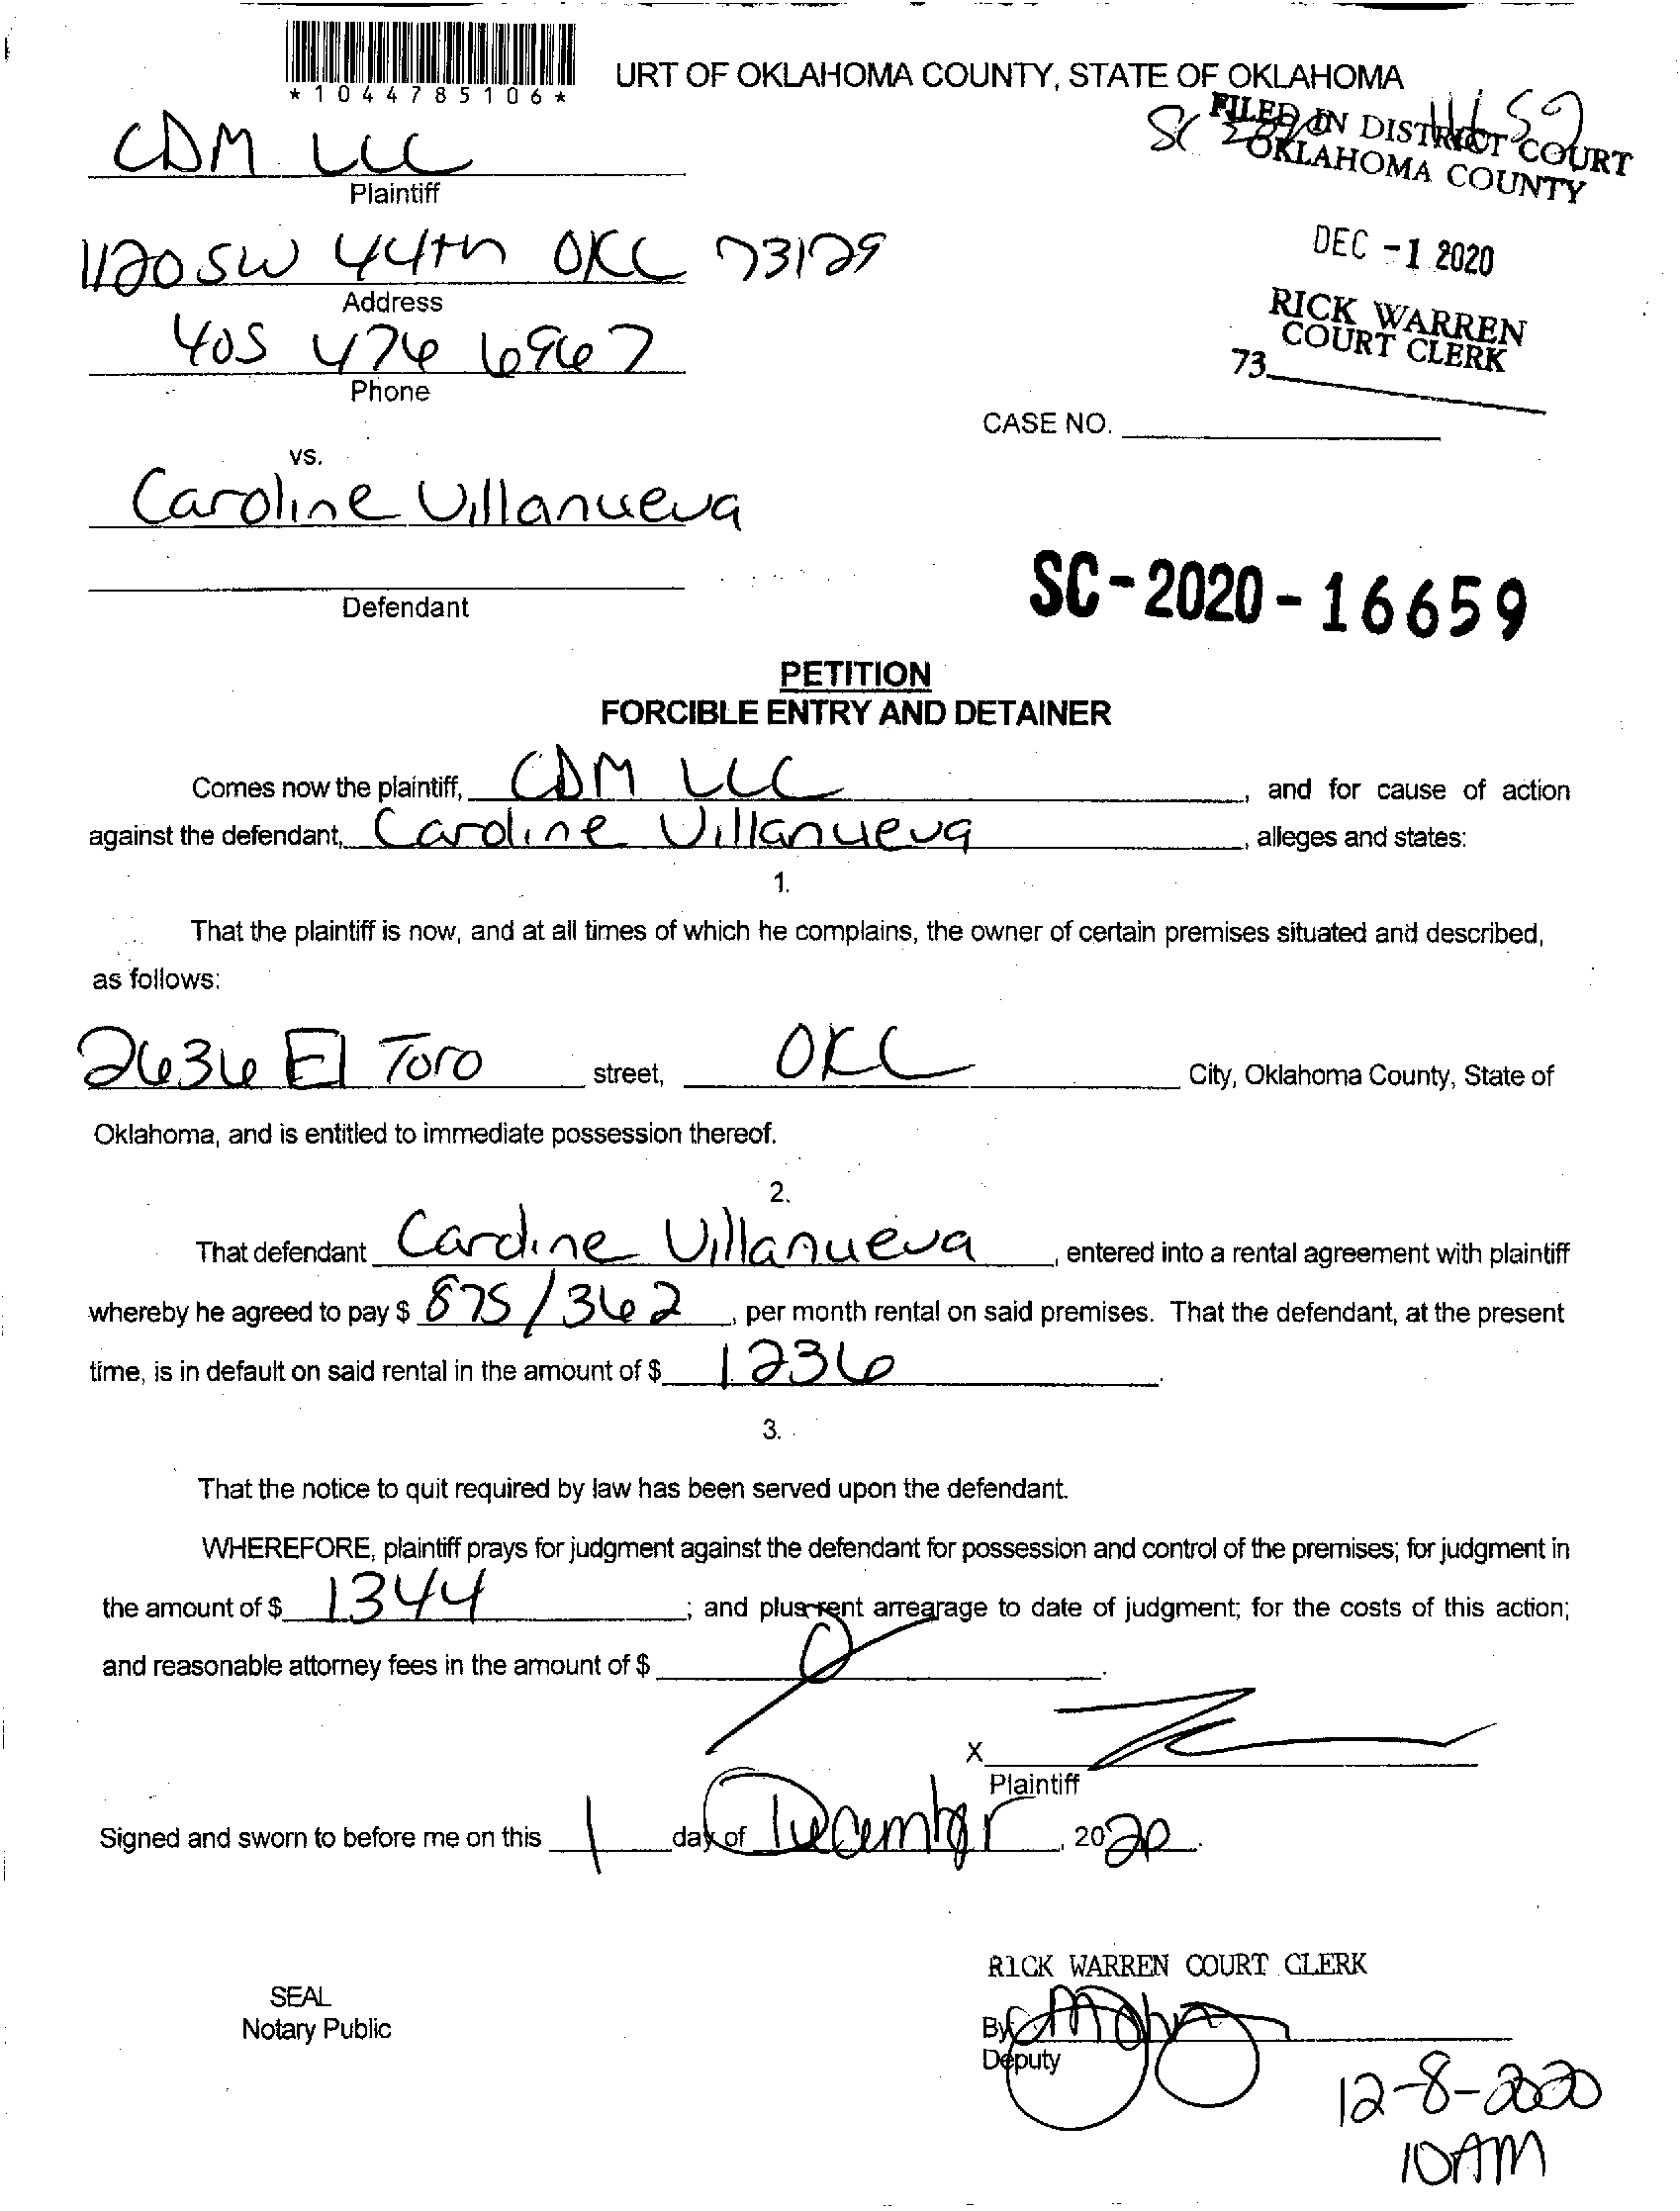 *1044785106*
URT OF OKLAHOMA COUNTY, STATE OF OKLAHOMA
CDM LLC
Plaintiff
SC
FILED IN DISTRICT COURT
OKLAHOMA COUNTY
1120 SW 44th OKC 73129
Address
DEC -1 2020
405 476 6967
Phone
RICK WARREN
COURT CLERK
73
CASE NO.
vs.
Caroline Villanueva
Defendant
SC-2020-16659
PETITION
FORCIBLE ENTRY AND DETAINER
Comes now the plaintiff, CDM LLC, and for cause of action
against the defendant, Caroline Villanueva, alleges and states:
1.
That the plaintiff is now, and at all times of which he complains, the owner of certain premises situated and described,
as follows:
2636 El Toro street, OKC City, Oklahoma County, State of
Oklahoma, and is entitled to immediate possession thereof.
2.
That defendant Caroline Villanueva, entered into a rental agreement with plaintiff
whereby he agreed to pay $ 875/362, per month rental on said premises. That the defendant, at the present
time, is in default on said rental in the amount of $ 1236.
3.
That the notice to quit required by law has been served upon the defendant.
WHEREFORE, plaintiff prays for judgment against the defendant for possession and control of the premises; for judgment in
the amount of $ 1344; and plus rent arrearage to date of judgment; for the costs of this action;
and reasonable attorney fees in the amount of $ .
X
Plaintiff
Signed and sworn to before me on this 1 day of December, 2020.
RICK WARREN COURT CLERK
SEAL
Notary Public
By
Deputy
12-8-2020
10AM